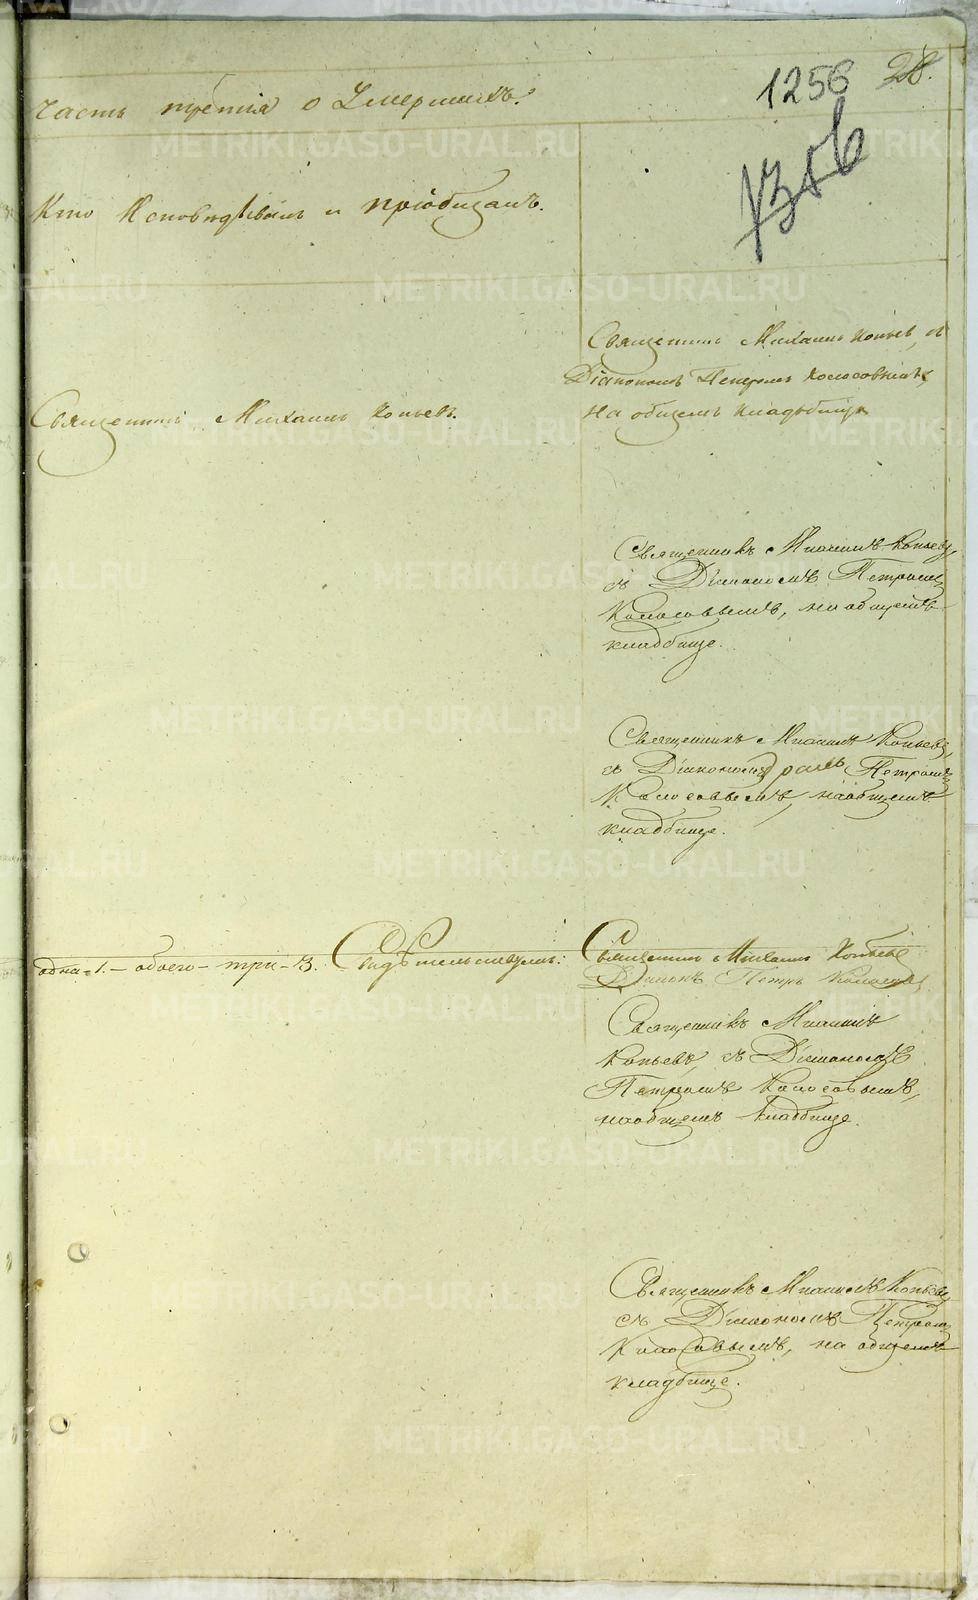 1256 28.
Часть третiя о Умершихъ.
Кто Исповѣдывалъ и прiобщалъ.
Священникъ Михаилъ Копьевъ, съ
Дiакономъ Петромъ Колосовымъ
на общемъ кладбищѣ
Священникъ Михаилъ Копьевъ.
Священникъ Михаилъ Копьевъ,
съ Дiакономъ Петромъ
Колосовымъ, на общемъ
кладбище.
Священникъ Михаилъ Копьевъ,
съ Дiакономъ Петромъ
Колосовымъ, на общемъ
кладбище.
одна - 1. - обоего - три - 3. Свидѣтельствуемъ: Священникъ Михаилъ Копьевъ
Дiаконъ Петръ Колосовъ
Священникъ Михаилъ
Копьевъ, съ Дiакономъ
Петромъ Колосовымъ,
на общемъ кладбище.
Священникъ Михаилъ Копьевъ
съ Дiакономъ Петромъ
Колосовымъ, на общемъ
кладбище.
METRIKI.GASO-URAL.RU